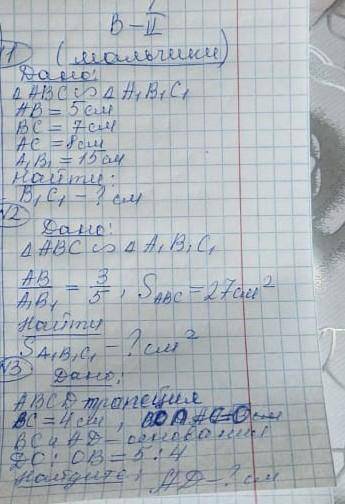 В-II
№1 (мальчики)
Дано:
△ABC ∽ △A₁B₁C₁
AB = 5 см
BC = 7 см
AC = 8 см
A₁B₁ = 15 см
Найти:
B₁C₁ - ? см
№2
Дано:
△ABC ∽ △A₁B₁C₁
AB/A₁B₁ = 3/5, S_ABC = 27 см²
Найти
S_A₁B₁C₁ - ? см²
№3
Дано:
ABCD трапеция
BC = 4 см,
BC и AD - основания
DO : OB = 5 : 4
Найдите: AD - ? см